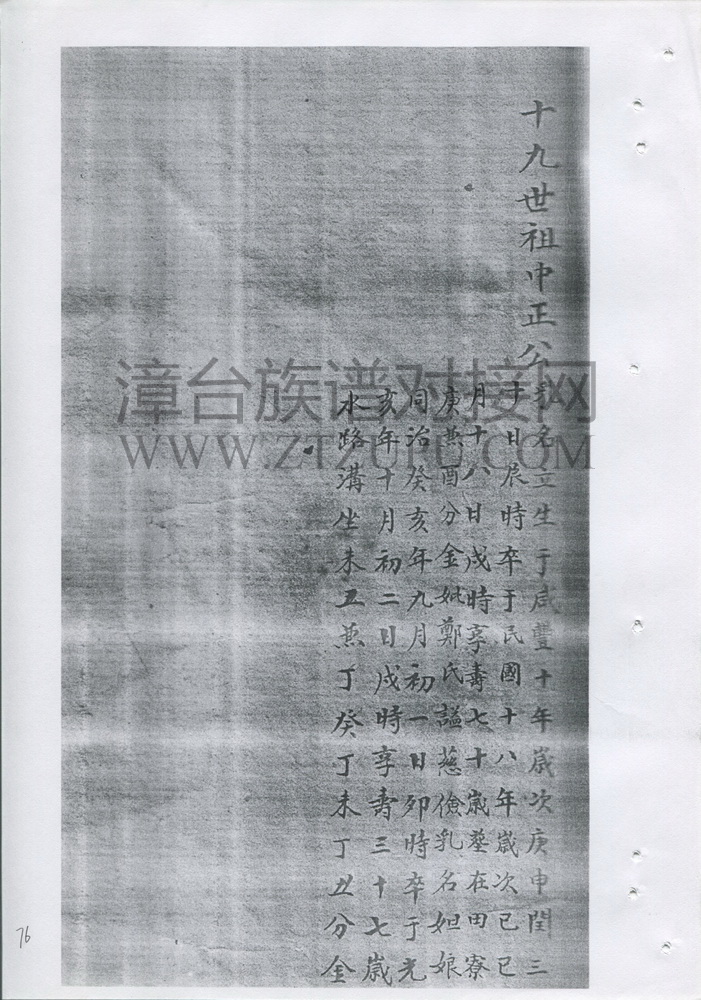 十九世祖中正公
名立生于咸豐十年歲次庚申閏三
十日辰時卒于民國十八年歲次己巳
月十八日戌時享壽七十歲塟在田寮
庚兼酉分金妣鄭氏謚慈儉乳名妲娘
同治癸亥年九月初一日卯時卒于光
亥年十月初二日戌時享壽三十七歲
水路溝坐未丑兼丁癸丁未丁丑分金
漳台族谱对接网
WWW.ZTZUPU.COM
76